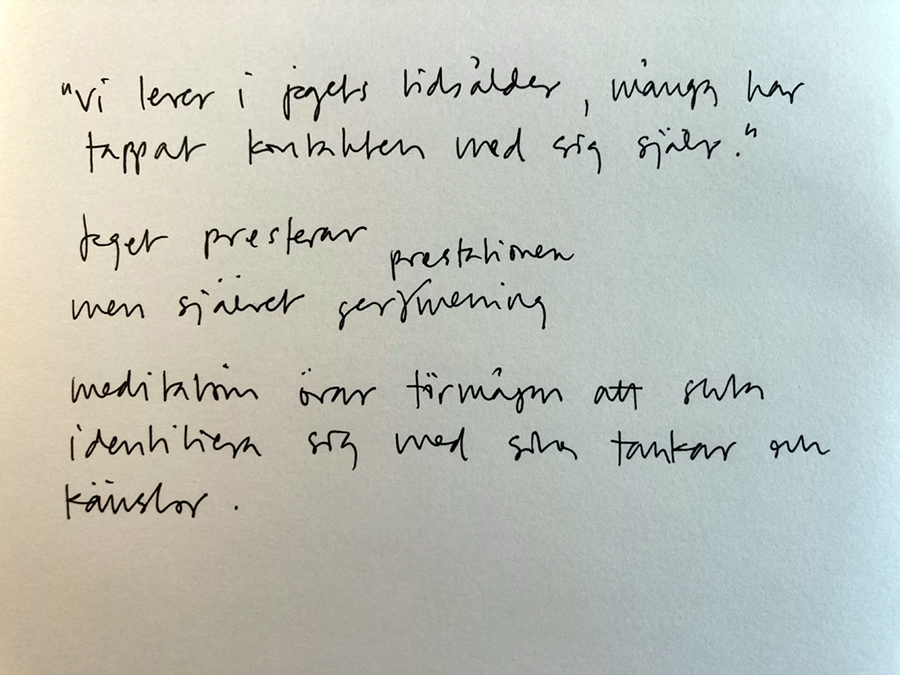 "vi lever i jagets tidsålder, många har
tappat kontakten med sig själv."
Jaget presterar
prestationen
men självet ger mening
meditation övar förmågan att sluta
identifiera sig med sina tankar och
känslor.